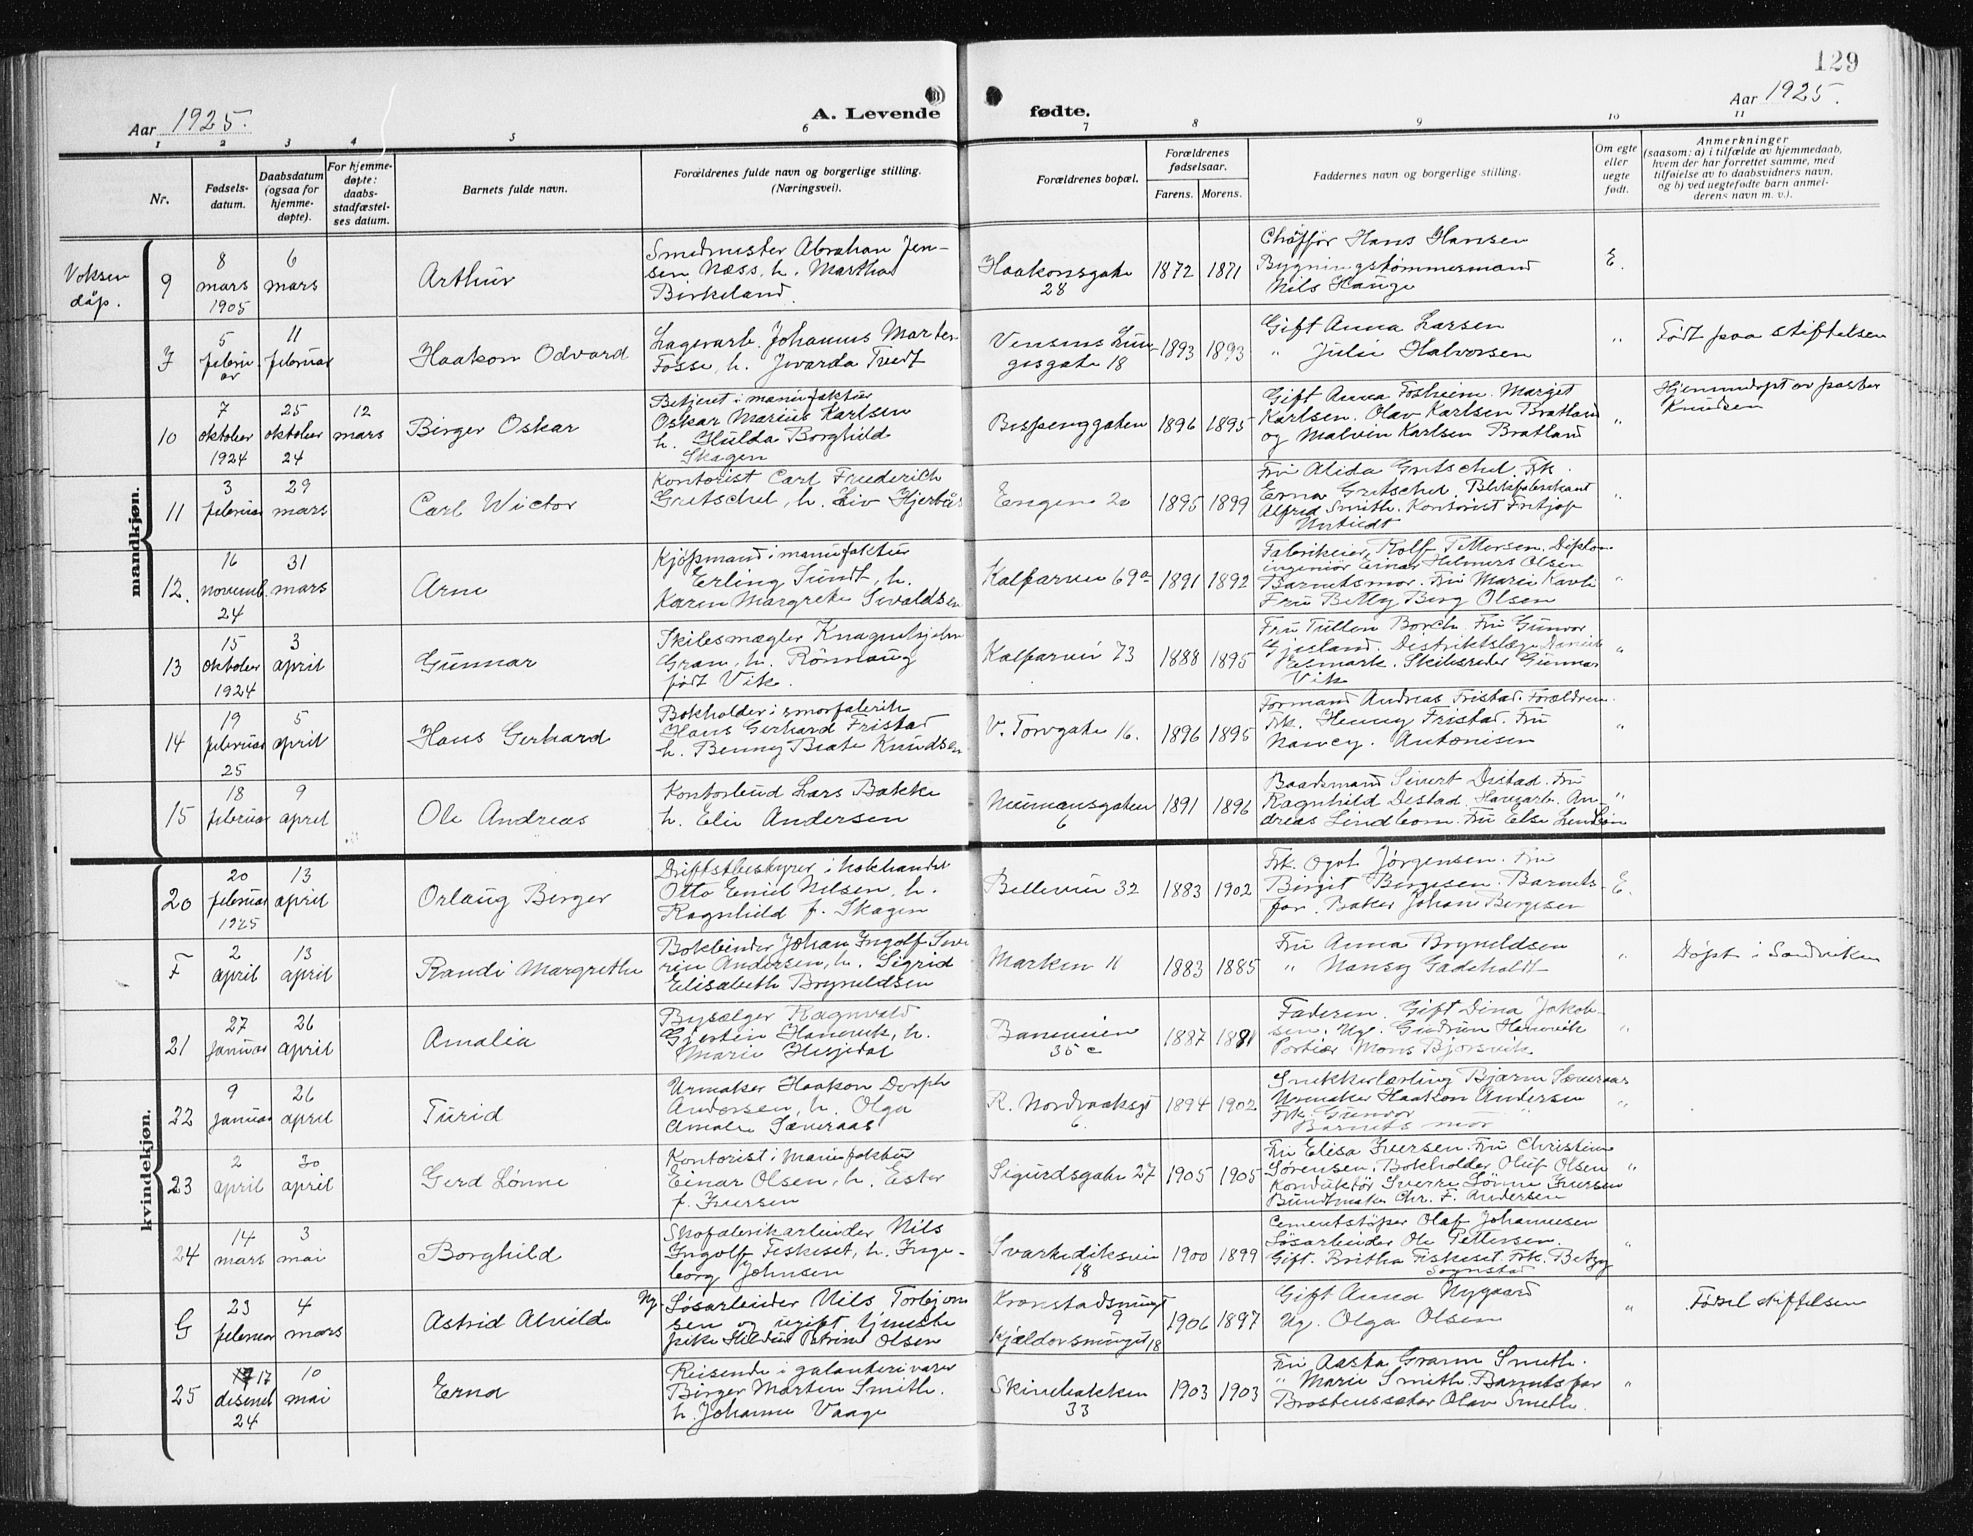 129
Aar 1925.
A. Levende
fødte.
Aar 1925.
1 2 3 4 5 6 7 8 9 10 11
Nr.
Fødsels-
datum.
Daabsdatum
(ogsaa for
hjemme-
døpte).
For hjemme-
døpte:
daabs-
stadfæstel-
ses datum.
Barnets fulde navn.
Forældrenes fulde navn og borgerlige stilling.
(Næringsvei).
Forældrenes bopæl.
Forældrenes
fødselsaar.
Farens. Morens.
Faddernes navn og borgerlige stilling.
Om egte
eller
uegte
født.
Anmerkninger
(saasom: a) i tilfælde av hjemmedaab,
hvem der har forrettet samme, med
tilføielse av to daabsvidners navn,
og b) ved uegtefødte barn anmel-
derens navn m. v.).
mandkjøn.
Voksen
dåp.
9
8
mars
1905
6
mars
Arthur
Smedmester Abraham Jen-
sen Næss, h. Martha
Birkeland
Haakonsgate
28
1872 1871
Chåffør Hans Hansen
Bygningstømmermand
Nils Hauge
E.
F
5
febru-
ar
11
februar
Haakon Odvard
Lagerarb. Johannes Marten
Fosse, h. Ivarda Tvedt
gesgate 18
1893 1893
Gift Anna Larsen
" Julie Halvorsen
"
Født paa Stiftelsen
10
7
oktober
1924
25
oktober
24
12
mars
Birger Oskar
Betjent i manufaktur
Oskar Marius Karlsen
h. Hulda Borghild
Skagen
Bispenggaten
1896 1895
Gift Anna Fosheim. Margit
Karlsen. Olav Karlsen Bratland
og Malvin Karlsen Bratland
"
Hjemmedøpt av pastor
Knudsen
11
3
februar
29
mars
Carl Wictor
Kontorist Carl Friederich
Gretschel, h. Liv Hjertås
Engen 20
1895 1899
Fru Alida Gretschel. Frk.
Erna Gretschel. Blikfabrikant
Alfred Smith. Kontorist Fritjof
"
12.
16
novemb.
24
31
mars
Arne
Kjøpmand i manufaktur
Erling Sundt, h.
Karen Margrete Sivaldsen
Kalfarvei 69a
1891 1892
Fabrikeier Rolf Pettersen. Diplom
ingeniør Einar Hilmers Olsen
Barnets mor. Fru Marie Kavli
Fru Betty Berg Olsen
"
13
15
oktober
1924
3
april
Gunnar
Skibsmægler
Gran, h. Rönnaug
født Vik.
Kalfarvei 73
1888 1895
Fru Tullen Borch. Fru Gunvor
Gjesland. Distriktslæge
Esmark. Skibsreder Gunnar
Vik
"
14
19
februar
25
5
april
Hans Gerhard
Bokholder i smørfabrik
Hans Gerhard Fristad
h. Benny Beate Knudsen
V. Torvgate 16.
1896 1895
Formand Andreas Fristad. Forældrene.
Frk. Henny Fristad. Fru
Nancy. Antonisen
"
15
18
februar
9
april
Ole Andreas
Kontorbud Lars Bakke
h. Elie Andersen
Neumansgaten
6
1891 1896
Baadsmand Sivert Distad. Fru
Ragnhild Distad. Havnarb. An-
dreas Lindbom. Fru Else Lindbom
"
kvindekjøn.
20
20
februar
1925
13
april
Orlaug Berger
Driftsbestyrer i kolhandel
Otto Emil Nilsen, h.
Ragnhild f. Skagen
Bellevuei 32
1883 1902
Frk. Ogot Jørgensen. Fru
Birgit Bergesen. Barnets
far. Baker Johan Bergesen
E.
F
2
april
13
april
Randi Margrethe
Bokbinder Johan Ingolf Seve
rin Andersen, h. Sigrid
Elisabeth Brynildsen
Marken 11
1883 1885
Fru Anna Brynildsen
" Nansy Gadeholdt
"
Døpt i Sandviken
21
27
januar
26
april
Amalia
Bysælger Ragnvald
Gjerstein Hamrvik, h.
Marie Husjedal
Baneveien
35 c
1887 1881
Faderen. Gift Dina Jakob-
sen. Ug. Gudrun Hamrvik
Portier Mons Bjørsvik
"
22
9
januar
26
april
Turid
Urmaker Haakon Dorph
Andersen, h. Olga
Amalie Sæveraas
R. Nordraaksgt
6.
1894 1902
Snekkerlærling Bjarne Sæveraas
Urmaker Haakon Andersen
Frk. Gunvor "
Barnets mor
"
23
2
april
30
april
Gerd Lønne
Kontorist i Manufaktur
Einar Olsen, h. Ester
f. Iversen
Sigurdsgate 27
1905 1905
Fru Elisa Iversen. Fru Christine
Sørensen. Bokholder Oluf Olsen
Konduktør Sverre Lønne Iversen
Buntmaker Chr. F. Andersen
"
24
14
mars
3
mai
Borghild
Skofabrikarbeider Nils
Ingolf Fiskeset, h. Inge-
borg Johnsen
Svartediksvei
18
1900 1899
Cementstøper Olaf Johannesen
Løsarbeider Ole Pettersen.
Gift. Britha Fiskeset. Frk. Betzy
Sognstad
"
G
23
februar
4
mars
Astrid Alvilde
Ug. Løsarbeider Nils Torbjørn
sen og ugift tjeneste
pike Hildur Petrine Olsen
Kronstadsmuget
9
Kjældersmuget 18
1906 1897
Gift Anna Nygaard
Ug. Olga Olsen
"
Fødsel stiftelsen
25
17
desemb
24
10
mai
Erna
Reisende i galanterivarer
Birger Morten Smith.
h. Johanne Vaage
Skivebakken
33
1903 1903
Fru Aasta Gramm Smith.
" Marie Smith. Barnets far
Brostenssetter Olav Smith.
"